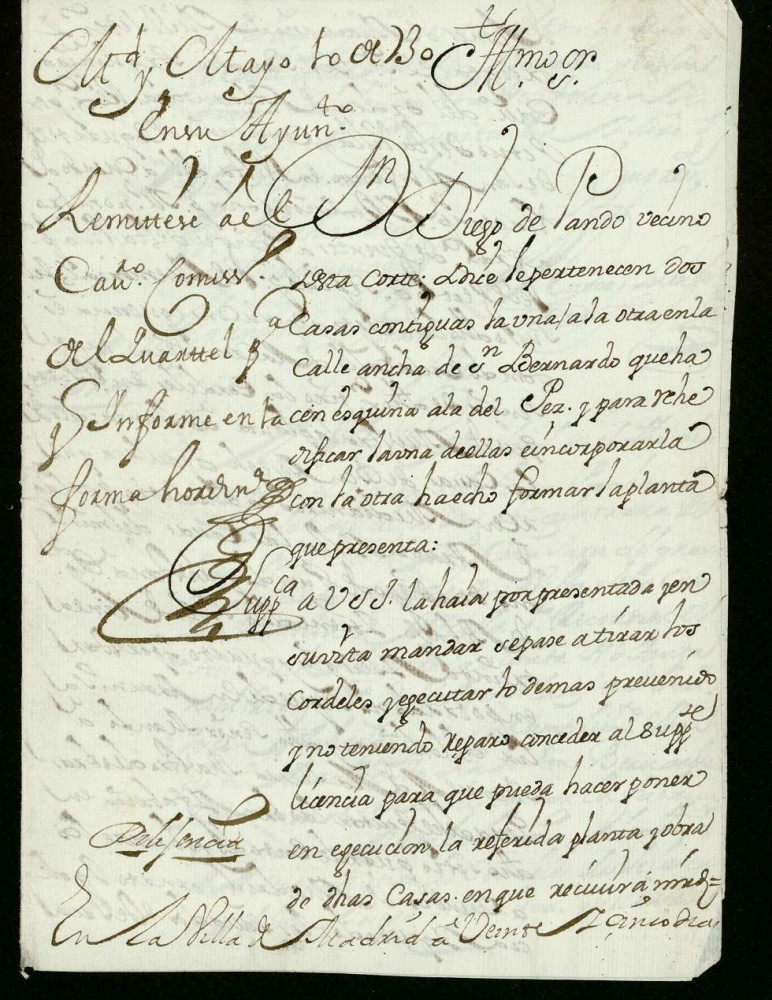 Md y Mayo to de 30
En su Ayunto.
Remitese a el
Cavo. Comisso.
del Quarttel pa
q Ynforme en la
forma hordina
Ylmo Sr.
Dn Diego de Pando vecino
desta Corte: Dice le pertenecen dos
Casas contiguas la vna / a la otra en la
Calle ancha de Sn Bernardo que ha
cen esquina a la del Pez. y para rehe
dificar la vna de ellas e incorporarla
con la otra ha echo formar la planta
que presenta:
Suppca a VSJ. la haia por presentada y en
su vizta mandar se pase a tirar los
Cordeles y egecutar lo demas prevenido
y no teniendo reparo conceder al Suppte
licencia para que pueda hacer poner
en egecucion la referida planta y obra
de dhas Casas. en que recivira mrd=
Dilixencia
En la Villa de Madrid a Veinte y cinco dias